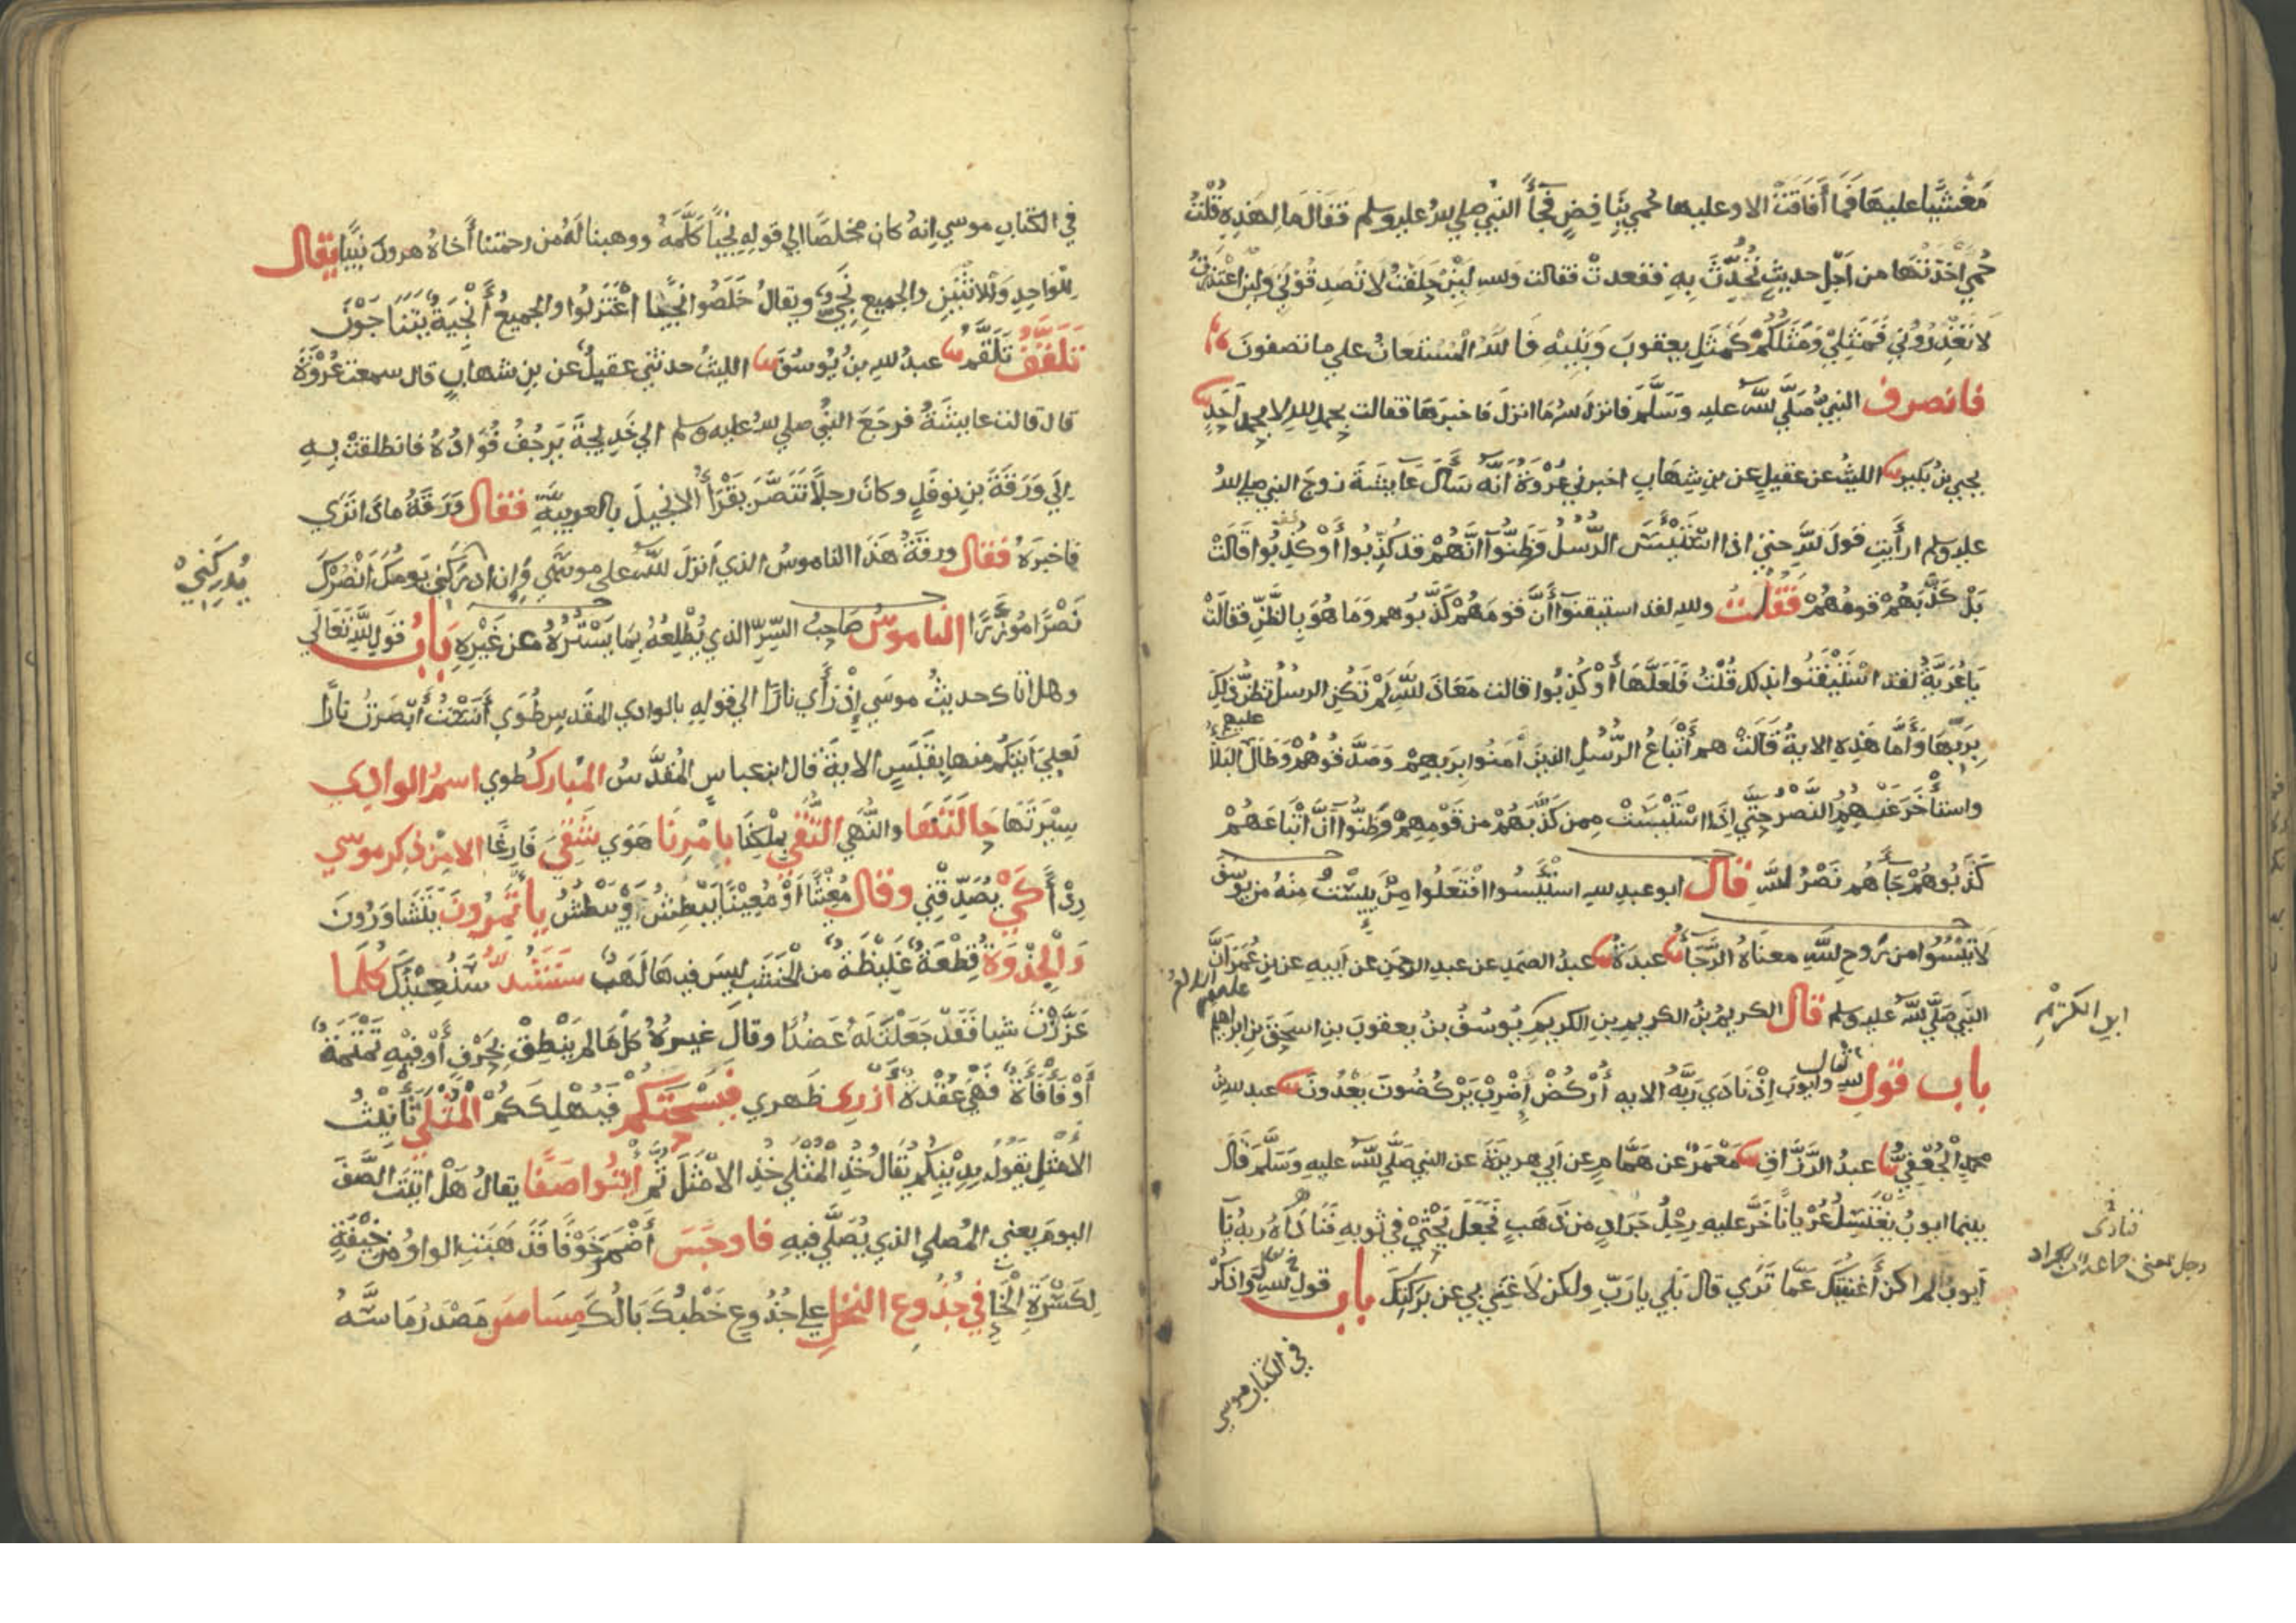 مَغْشيًّا عليها فَمَا أَفَاقَتْ الا وعليها حُمى بِنَافِضٍ فجَآءَ النبي صلى الله عليه وسلم فقَالَ مَا لِهَذِهِ قُلْتُ
حُمى أَخَذَتْهَا من اَجْلِ حديثٍ تُحُدِّثَ بِهِ فقعدتْ فقالت والله لَئِنْ حَلَفْتُ لا تُصَدِقُوني وَلَئِن اعْتَذَرْتُ
لا تَعْذِرُوني فَمَثَلِي وَمَثَلُكُمْ كَمَثَلِ يعقوبَ وَبَنِيْهِ فَاللهُ الْمُسْتَعَانُ على ما تصفونَ
فانصرف النبيُّ صَلَّى اللهُ عليه وَسَلَّمَ فانزلَ اللهُ مَا انزلَ فاخبرَهَا فقالت بحمدِ اللهِ لا بحمدِ اَحَدٍ
يحيى بنُ بُكَيرٍ الليثُ عن عقيلٍ عن بنِ شِهَابٍ اخبرني عُرْوَةُ أَنَّهُ سَأَلَ عَايشَةَ زوجَ النبي صلى الله
عليه وسلم ارأَيتِ قولَ اللهِ حتى اذا اسْتَيْئَسَ الرُّسُلُ وَظَنُّوآ اَنَّهُمْ قد كُذِّبُوا أَوْ كُذِبُوا قَالَتْ
بَلْ كَذَّبَهُمْ قومُهُمْ فَقُلْتُ والله لقد استيقنوآ أَنَّ قومَهُمْ كَذَّبُوهم وَمَا هُوَ بِالظَّنِّ فقالَتْ
يَا عُرَيَّةُ لقد اسْتَيْقَنُوا بذلك قُلْتُ فَلَعَلَّهَا أَوْ كُذِبُوا قالت مَعَاذَ اللهِ لَمْ تَكُنِ الرسلُ تظنُّ ذلِكَ
بِرَبِّهَا وَأَمَّا هَذِهِ الايةُ قَالَتْ هم أَتْبَاعُ الرُّسُلِ الذينَ آمَنُوا بِرَبِهِمْ وَصَدَّقُوهُمْ وَطَالَ عليهم البَلَاءُ
واستأخَرَ عَنْهُمُ النَّصْرُ حتَّى إِذَا اسْتَيْئَسَتْ ممن كَذَّبَهُمْ من قَوْمِهِمْ وَظَنُّوآ أَنَّ أَتْبَاعَهُمْ
كَذَّبُوهُمْ جَآءَهُم نَصْرُ اللهِ قال ابو عبدِ اللهِ استَيْئَسُوا افْتَعَلُوا مِنْ يَئِسْتُ مِنْهُ من يوسُفَ
لا تَيْئَسُوا من رَوحِ اللهِ معنَاهُ الرَّجَآءُ عبدةُ عبدُ الصمدِ عن عبدِ الرحمنِ عن اَبيهِ عن بنِ عُمَرَ اَنَّ
النبيَ صَلَّى اللهُ عليه وسلم قال الكريمُ بنُ الكريمِ بنِ الكريمِ يُوسُفُ بنُ يعقوبَ بنِ اسحقَ بنِ ابراهيم عليهم السلام
ابنِ الكَرِيْمِ
باب قولِ اللهِ تعالى وايوبَ إِذْ نَادَى رَبَّهُ الايه أُرْكُضْ إِضْرِبْ يَرْكُضُونَ يَعْدُونَ عبد الله بن
محمدٍ الْجُعْفِيُّ عبدُ الرَّزَّاقِ مَعْمَرٌ عن هَمَّامٍ عن اَبي هريرَةَ عن النبي صَلَّى اللهُ عليه وَسَلَّمَ قَالَ
بينما ايوبُ يَغْتَسِلُ عُرْيَانًا خَرَّ عليه رِجْلُ جَرَادٍ من ذَهَبٍ فَجَعَلَ يَحْثِيْ في ثوبِهِ فَنَادَاهُ رَبُهُ يَآ
فنادى
رجل بمعنى جماعة من الجراد
أَيوبُ أَلَم اَكن أَغْنَيْتُكَ عَمَّا تَرَى قال بَلَى يا رَبِّ ولكن لَا غِنَى بي عن بَرَكَتِكَ باب قولِ اللهِ وَاذكُرْ
في الكتابِ موسى
في الكتابِ موسى إِنهُ كان مخلصًا الى قولِهِ نَجِيًّا كَلَّمَهُ ووهبنا لَهُ من رحمتنا أَخاهُ هرون نَبِيًّا يقال
لِلْواحِدِ وَللاثْنَيْنِ والجميعِ نَجِيٌّ ويقالُ خَلَصُوا نَجِيًّا اعْتَزلُوا والجميعُ أَنْجِيَةٌ يَتَنَاجَوْنَ
تَلَقَّفُ تَلَقَّمُ عبدُ اللهِ بنُ يُوسُفَ الليثُ حدثني عقيلٌ عن بنِ شهابٍ قال سمعت عُرْوَةَ
قال قالت عايشَةُ فرجَعَ النبيُ صلى الله عليه وسلم الى خَدِيجةَ يَرجُفُ فُوَادُهُ فانطلقتْ بِهِ
إِلَى وَرَقَةَ بنِ نَوفَلٍ وكانَ رجلاً تَنَصَّرَ يَقْرَأُ الانجيلَ بالعربيةِ فقال وَرَقَةُ ماذَا ترَى
فاخبرَهُ فقال ورقَةُ هَذَا الناموسُ الذي اَنزلَ اللهُ على موسَى وَإِن ادركَنِي يَومُكَ أَنْصُرْكَ
يُدرِكَنِيْ
نَصْرًا مُوَزَّرًا الناموسُ صَاحِبُ السِّرِّ الذي يُطْلِعُهُ بِمَا يَسْتُرُهُ عن غَيْرِهِ بَابُ قولِ اللهِ تَعَالَى
وهل اتاكَ حديثُ موسَى إِذْ رَأَى نارًا الى قولِهِ بالوادي المقدسِ طُوًى أَنَسْتُ أَبْصَرْتُ نارًا
لَعلِّي آتيكُم منها بقَبَسٍ الايةَ قال ابن عباسٍ المُقَدَّسُ المبارك طوى اسمُ الوادي
سِيْرَتَهَا حَالَتَهَا والنُّهَى التُّقَى بِمَلْكِنَا بامْرِنَا هَوَى شَقِيَ فَارِغًا الا من ذكر موسى
رِدْأً كَيْ يُصَدِّقَنِي وقال مُغِيْثًا أَوْ مُعِيْنًا يَبْطِشُ وَيَبْطُشُ يأتَمِرُونَ يَتَشَاوَرُونَ
وَالْجِذْوَةُ قِطْعَةٌ غَلِيْظَةٌ من الخَشَبِ ليسَ فيها لَهَبٌ سَنَشُدُّ سَنُعِيْنُكَ كُلَّمَا
عَزَّزْتَ شيا فَقَدْ جَعَلْتَ لَهُ عَضُدًا وقالَ غيرهُ كلَّمَا لم يَنْطِقْ بحَرْفٍ أَوْ فيْهِ تَمْتَمَةٌ
أَوْ فَأْفَأَةٌ فَهْيَ عُقْدَةٌ أَزْرِى ظَهري فَيَسْحَتَكُم فَيُهْلِكَكُمْ الْمُثْلَى تَأْنِيْثُ
الأَمْثَلِ يَقُولُ بِدِيْنِكُم يُقَالُ خُذِ الْمُثْلَى خُذِ الاَمْثَلَ ثُمَّ ائْتُوا صَفًّا يقالُ هَلْ اتيتَ الصَّفَ
اليومَ يعني المُصلى الذي يُصَلَّى فِيهِ فاوجَسَ أَضْمَرَ خَوْفًا فَذَهَبَتِ الواوُ من خِيْفَةٍ
لِكَسْرَةِ الْخَاءِ في جُذُوعِ النخلِ على جُذُوعِ خَطْبُكَ بَالُكَ مِسَاسَ مَصْدَرُ مَاسَّهُ